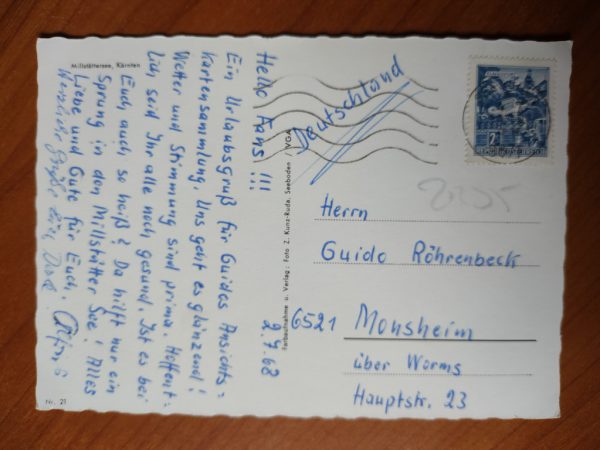 Millstättersee, Kärnten
Hello Fans !!!
2.7.68
Ein Urlaubsgruß für Guidos Ansichts=
Kartensammlung. Uns geht es glänzend!
Wetter und Stimmung sind prima. Hoffent=
lich seid Ihr alle noch gesund. Ist es bei
Euch auch so heiß? Da hilft nur ein
Sprung in den Millstätter See! Alles
Liebe und Gute für Euch.
Herzliche Grüße
Nr. 21
Farbaufnahme u. Verlag: Foto Z. Kunz-Ruda, Seeboden / VGA
Deutschland
REPUBLIK ÖSTERREICH
Herrn
Guido Röhrenbeck
6521 Monsheim
über Worms
Hauptstr. 23